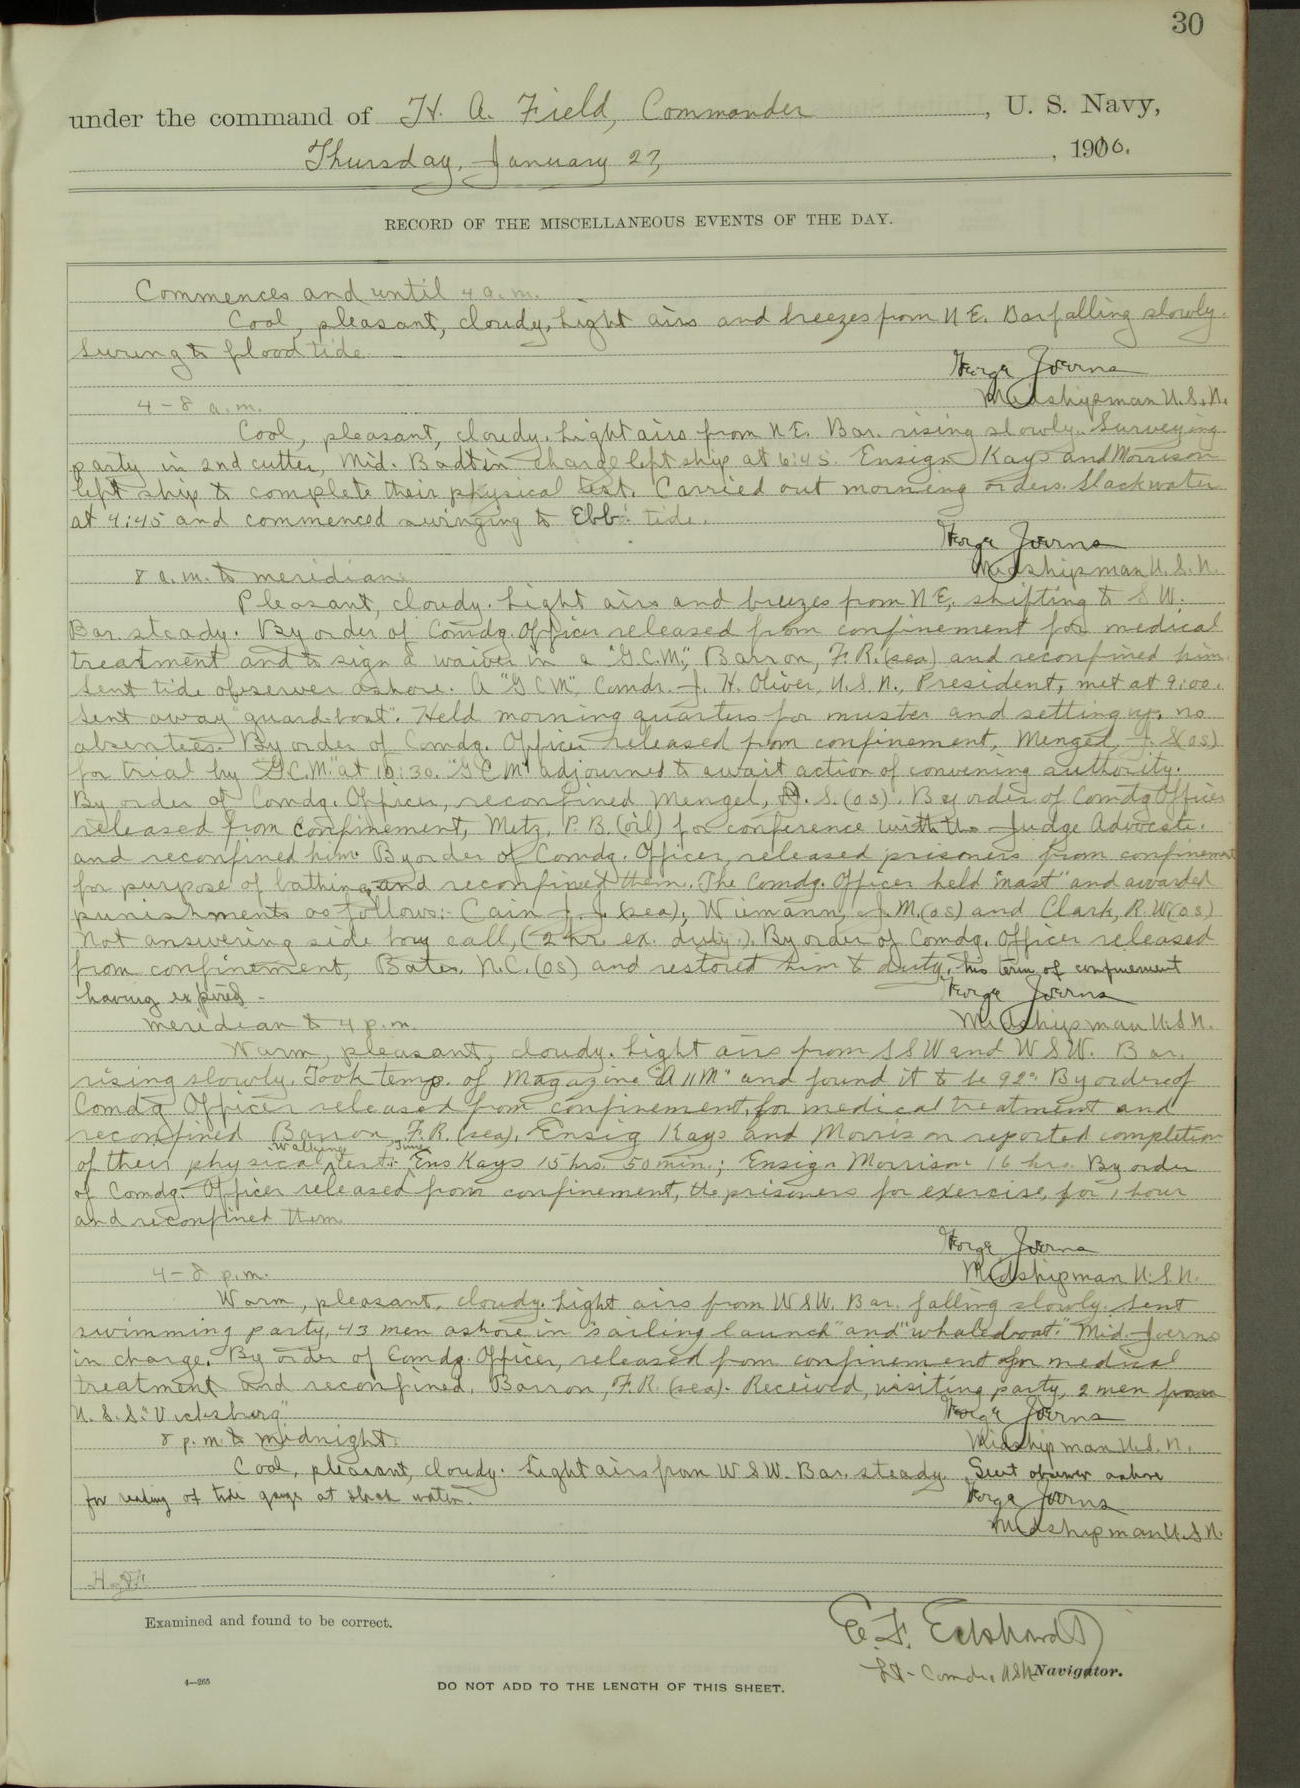 30
under the command of H. A. Field, Commander, U. S. Navy,
Thursday, January 27, 1910.
RECORD OF THE MISCELLANEOUS EVENTS OF THE DAY.
Commences and until 4 a.m.
Cool, pleasant, cloudy. Light airs and breezes from N E. Bar falling slowly.
Swung to flood tide.
George Joerns
Midshipman U.S.N.
4-8 a.m.
Cool, pleasant, cloudy. Light airs from N E. Bar. rising slowly. Surveying
party in 2nd cutter, Mid. Badt in charge left ship at 6:45. Ensigns Kays and Morrison
left ship to complete their physical test. Carried out morning orders. Slack water
at 4:45 and commenced swinging to Ebb tide.
George Joerns
Midshipman U.S.N.
8 a.m. to meridian.
Pleasant, cloudy. Light airs and breezes from N E, shifting to S W.
Bar. steady. By order of Comdg. Officer released from confinement for medical
treatment and to sign a waiver in a "G.C.M.", Barron, F.R. (sea) and reconfined him.
Sent tide observer ashore. A "G C M", Comdr. J. H. Oliver, U.S.N., President, met at 9:00.
Sent away "guard-boat". Held morning quarters for muster and setting up, no
absentees. By order of Comdg. Officer released from confinement, Mengel, J. S (os)
for trial by "G.C.M." at 10:30. "G C M" adjourned to await action of convening authority.
By order of Comdg. Officer, reconfined Mengel, S. (os). By order of Comdg Officer
released from confinement, Metz, P. B. (oil) for conference with the Judge Advocate.
and reconfined him. By order of Comdg. Officer, released prisoners from confinement
for purpose of bathing and reconfined them. The Comdg. Officer held "mast" and awarded
punishments as follows:- Cain J. J. (sea), Wiemann, J. M. (os) and Clark, R. W (os)
Not answering side boy call, (2 hr. ex. duty.). By order of Comdg. Officer released
from confinement, Bates, N.C. (os) and restored him to duty, his term of confinement
having expired-
George Joerns
Midshipman U.S.N.
Meridian to 4 p.m.
Warm, pleasant, cloudy. Light airs from S S W and W S W. Bar.
rising slowly. Took temp. of Magazine "A 11 M" and found it to be 92° By order of
Comdg Officer released from confinement, for medical treatment and
reconfined Barron, F.R. (sea). Ensig Kays and Morrison reported completion
of their physical walking test: time Ens Kays 15 hrs. 50 min.; Ensign Morrison 16 hrs. By order
of Comdg. Officer released from confinement, the prisoners for exercise, for 1 hour
and reconfined them
George Joerns
Midshipman U.S.N.
4-8 p.m.
Warm, pleasant, cloudy. Light airs from W S W. Bar. falling slowly. Sent
swimming party, 43 men ashore in "sailing launch" and "whaleboat." Mid. Joerns
in charge. By order of Comdg. Officer, released from confinement for medical
treatment and reconfined, Barron, F.R. (sea). Received, visiting party, 2 men from
U.S.S. "Vicksburg"
George Joerns
Midshipman U.S.N.
8 p.m. to midnight.
Cool, pleasant, cloudy. Light airs from W S W. Bar. steady. Sent observer ashore
for reading of tide gauge at slack water.
George Joerns
Midshipman U.S.N.
Examined and found to be correct.
E. F. Eckhardt
Lt-Comdr, USN Navigator.
4-265
DO NOT ADD TO THE LENGTH OF THIS SHEET.